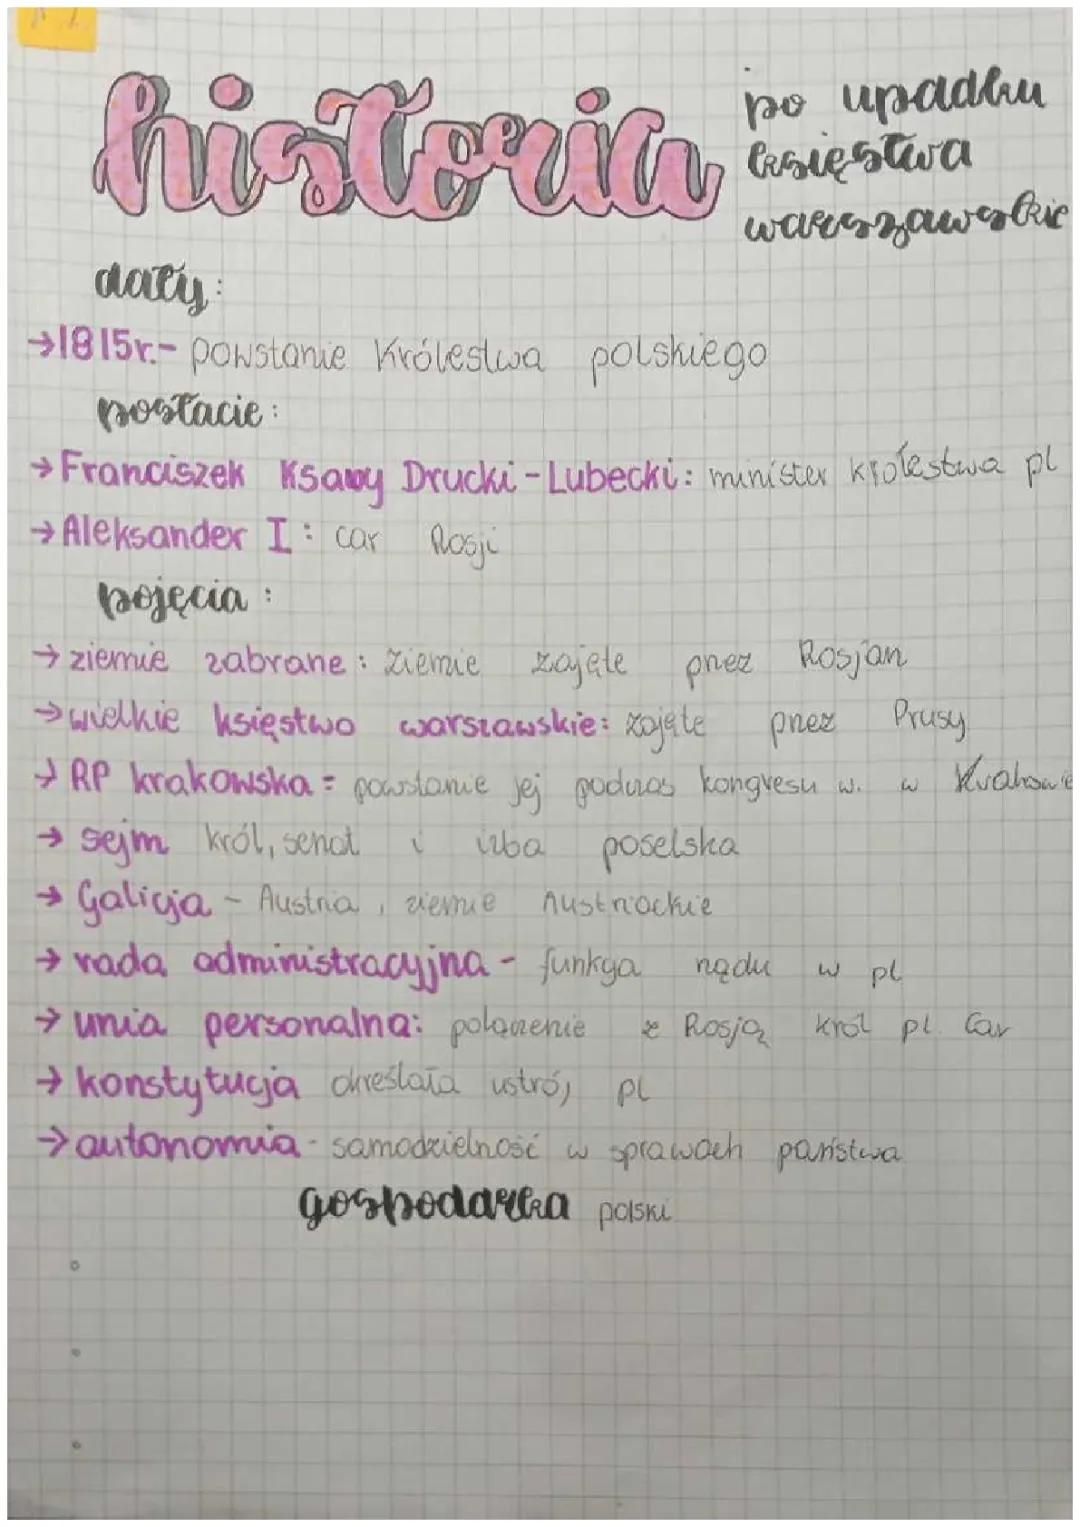 historia
po upadku
księstwa
warszawskie
daty:
→1815r.- powstanie Królestwa polskiego
postacie:
→Franciszek Ksawy Drucki-Lubecki: minister królestwa pl
→Aleksander I: car Rosji
pojęcia:
→ziemie zabrane: ziemie zajęte przez Rosjan
→wielkie księstwo warszawskie: zajęte przez Prusy
→RP krakowska= powstanie jej podczas kongresu w. w Krakowie
→sejm król, senat i izba poselska
→Galicja - Austria, ziemie Austriackie
→rada administracyjna- funkcja rządu w pl
→unia personalna: połączenie z Rosją król pl. Car
→konstytucja określała ustrój pl
→autonomia- samodzielność w sprawach państwa
gospodarka polski